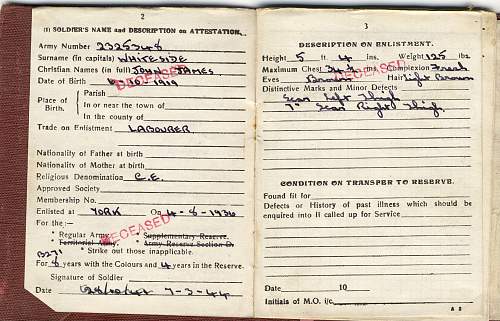 2
(1) SOLDIER'S NAME and DESCRIPTION on ATTESTATION.
Army Number 2325248
Surname (in capitals) WHITESIDE
Christian Names (in full) JOHN JAMES
DECEASED
Date of Birth 6-10-1919
Place of Birth.
Parish
In or near the town of
In the county of
Trade on Enlistment LABOURER
Nationality of Father at birth
Nationality of Mother at birth
Religious Denomination C.E.
Approved Society
Membership No.
Enlisted at YORK On 4-8-1936
DECEASED
For the:—
• Regular Army. • Supplementary Reserve.
• Territorial Army. • Army Reserve Section D.
• Strike out those inapplicable.
For 8 years with the Colours and 4 years in the Reserve.
Signature of Soldier
Date 7-3-44
3
DESCRIPTION ON ENLISTMENT.
Height 5 ft. 4 ins. Weight 125 lbs
Maximum Chest 34 ins. Complexion Fresh
DECEASED
Eyes Brown Hair Light Brown
Distinctive Marks and Minor Defects
Scar Left Thigh
7" Scar Right Thigh
CONDITION ON TRANSFER TO RESERVE.
Found fit for
Defects or History of past illness which should be
enquired into if called up for Service
Date 10
Initials of M.O. i/c
A 2